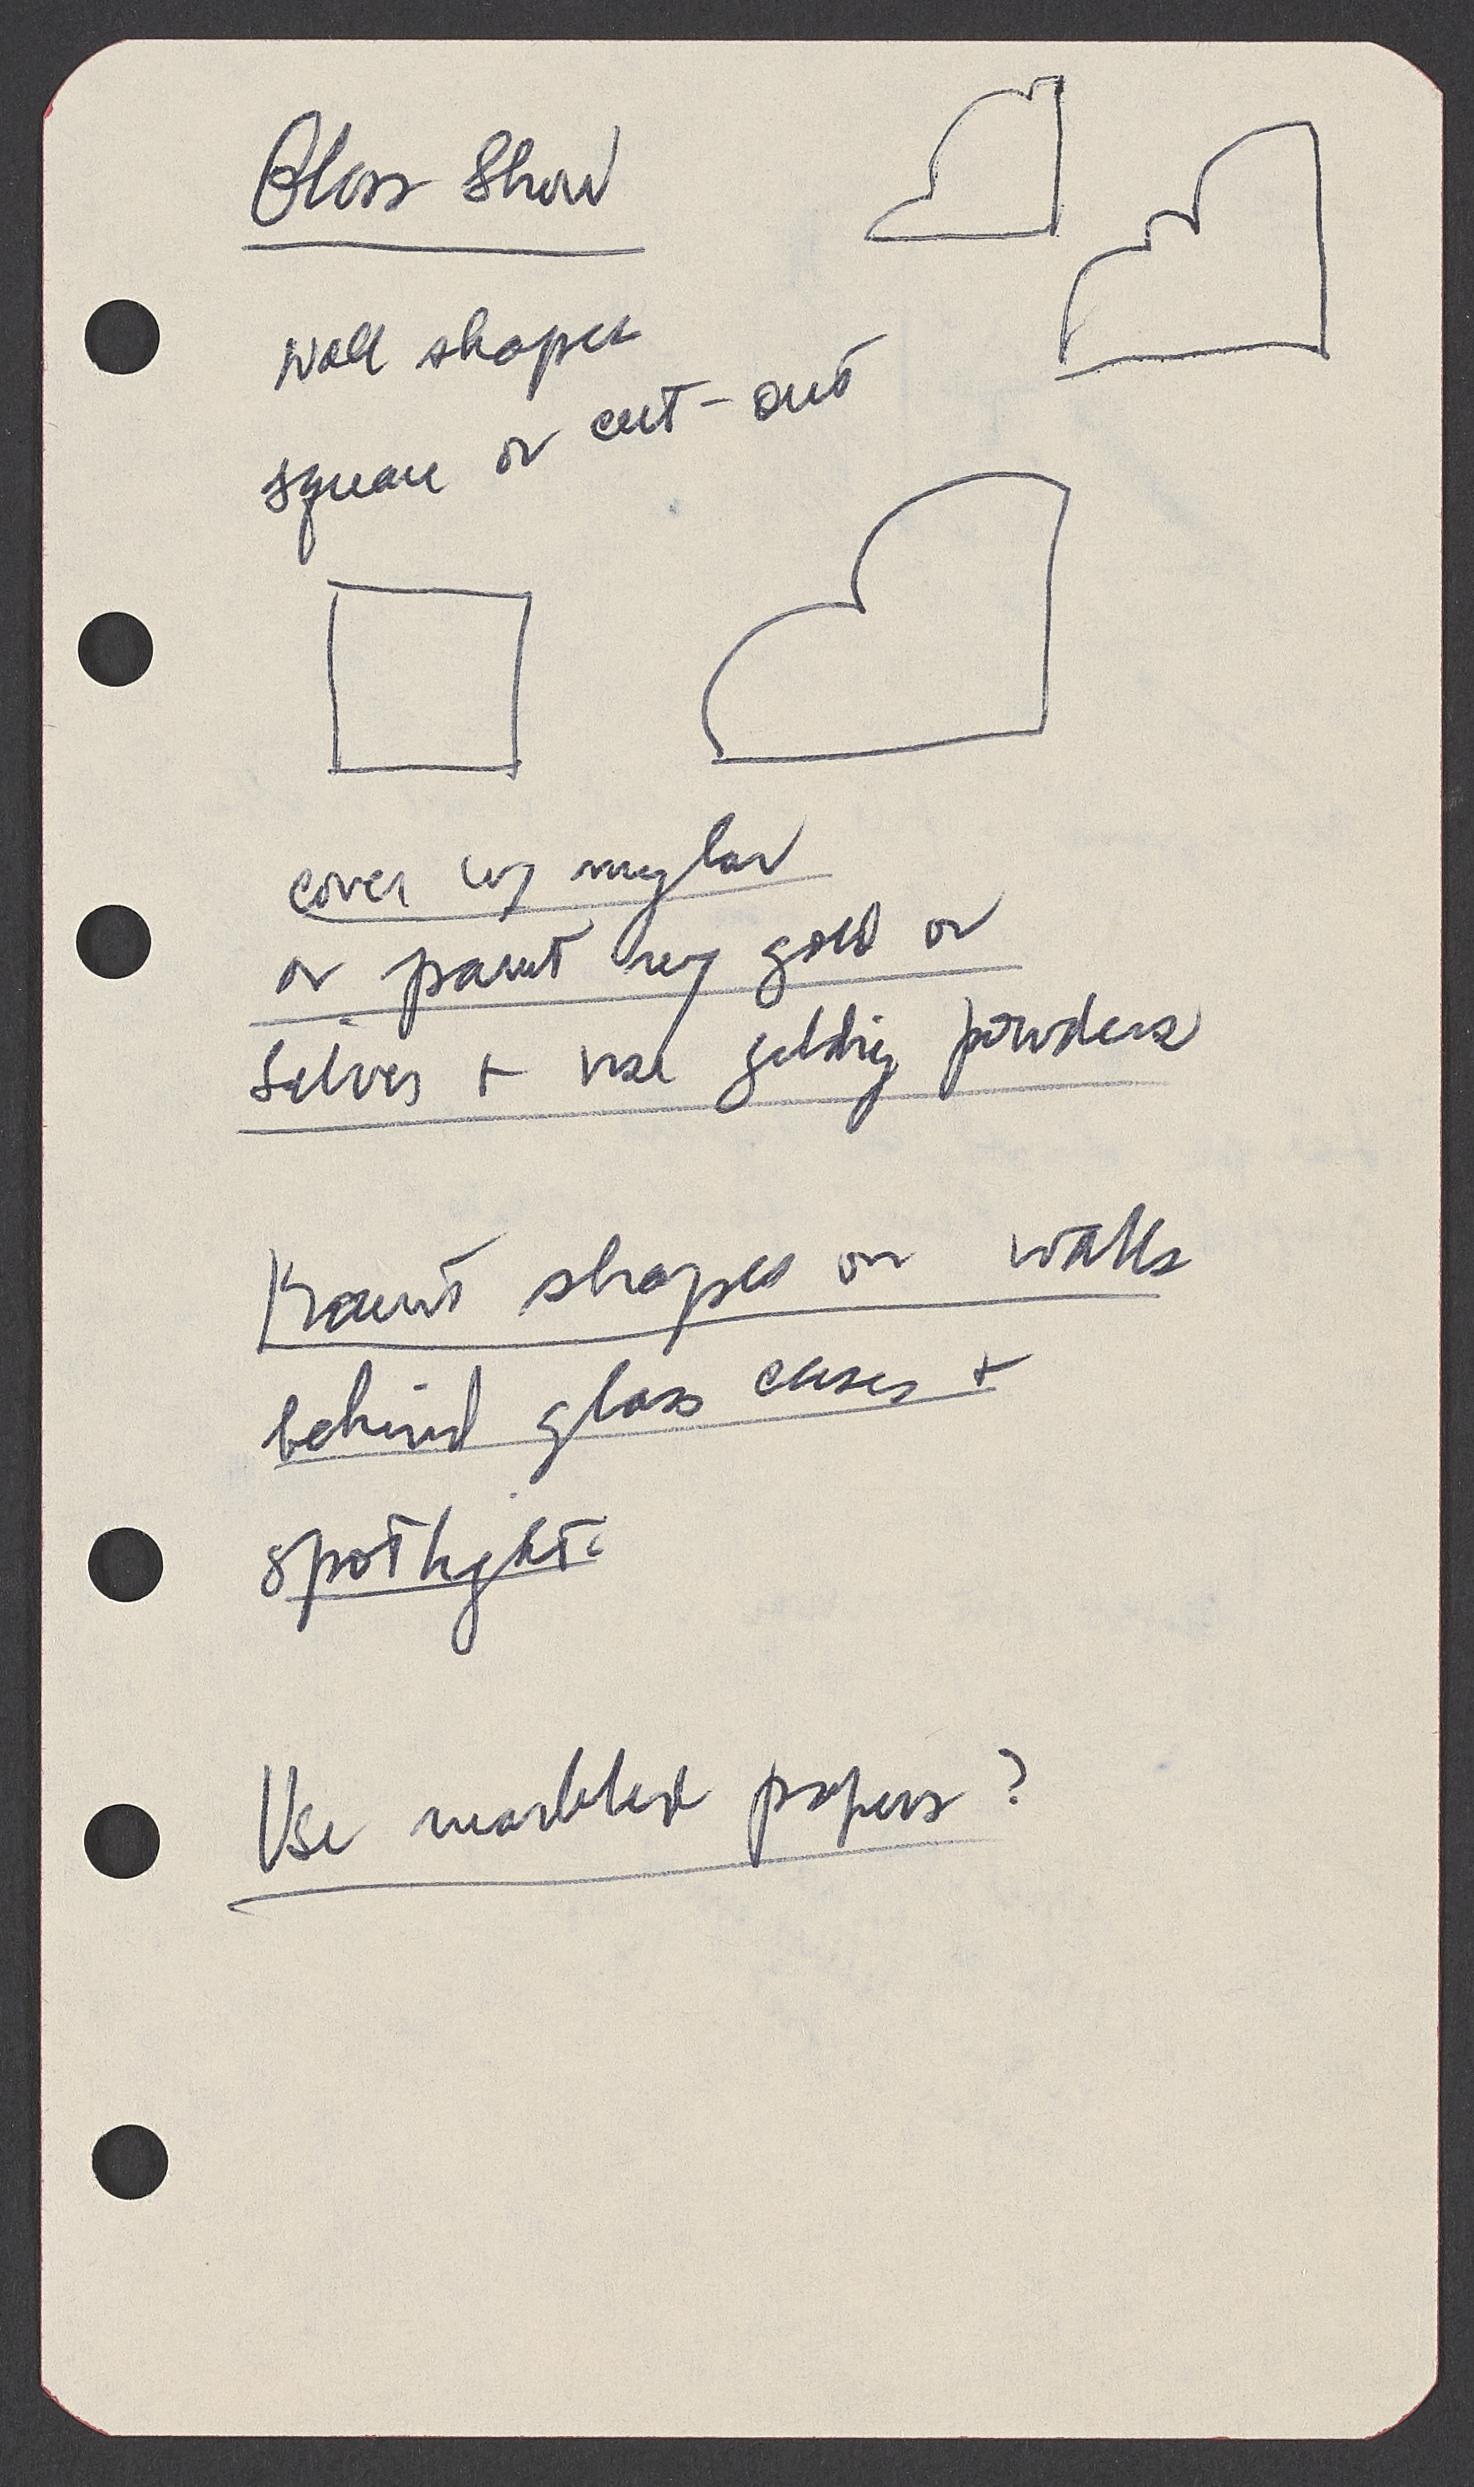 Glass Show
Wall shapes
square or cut-out
cover w/ mylar
or paint w/ gold or
silver + use gilding powders
Paint shapes on walls
behind glass cases +
spotlight.
Use marbled papers?